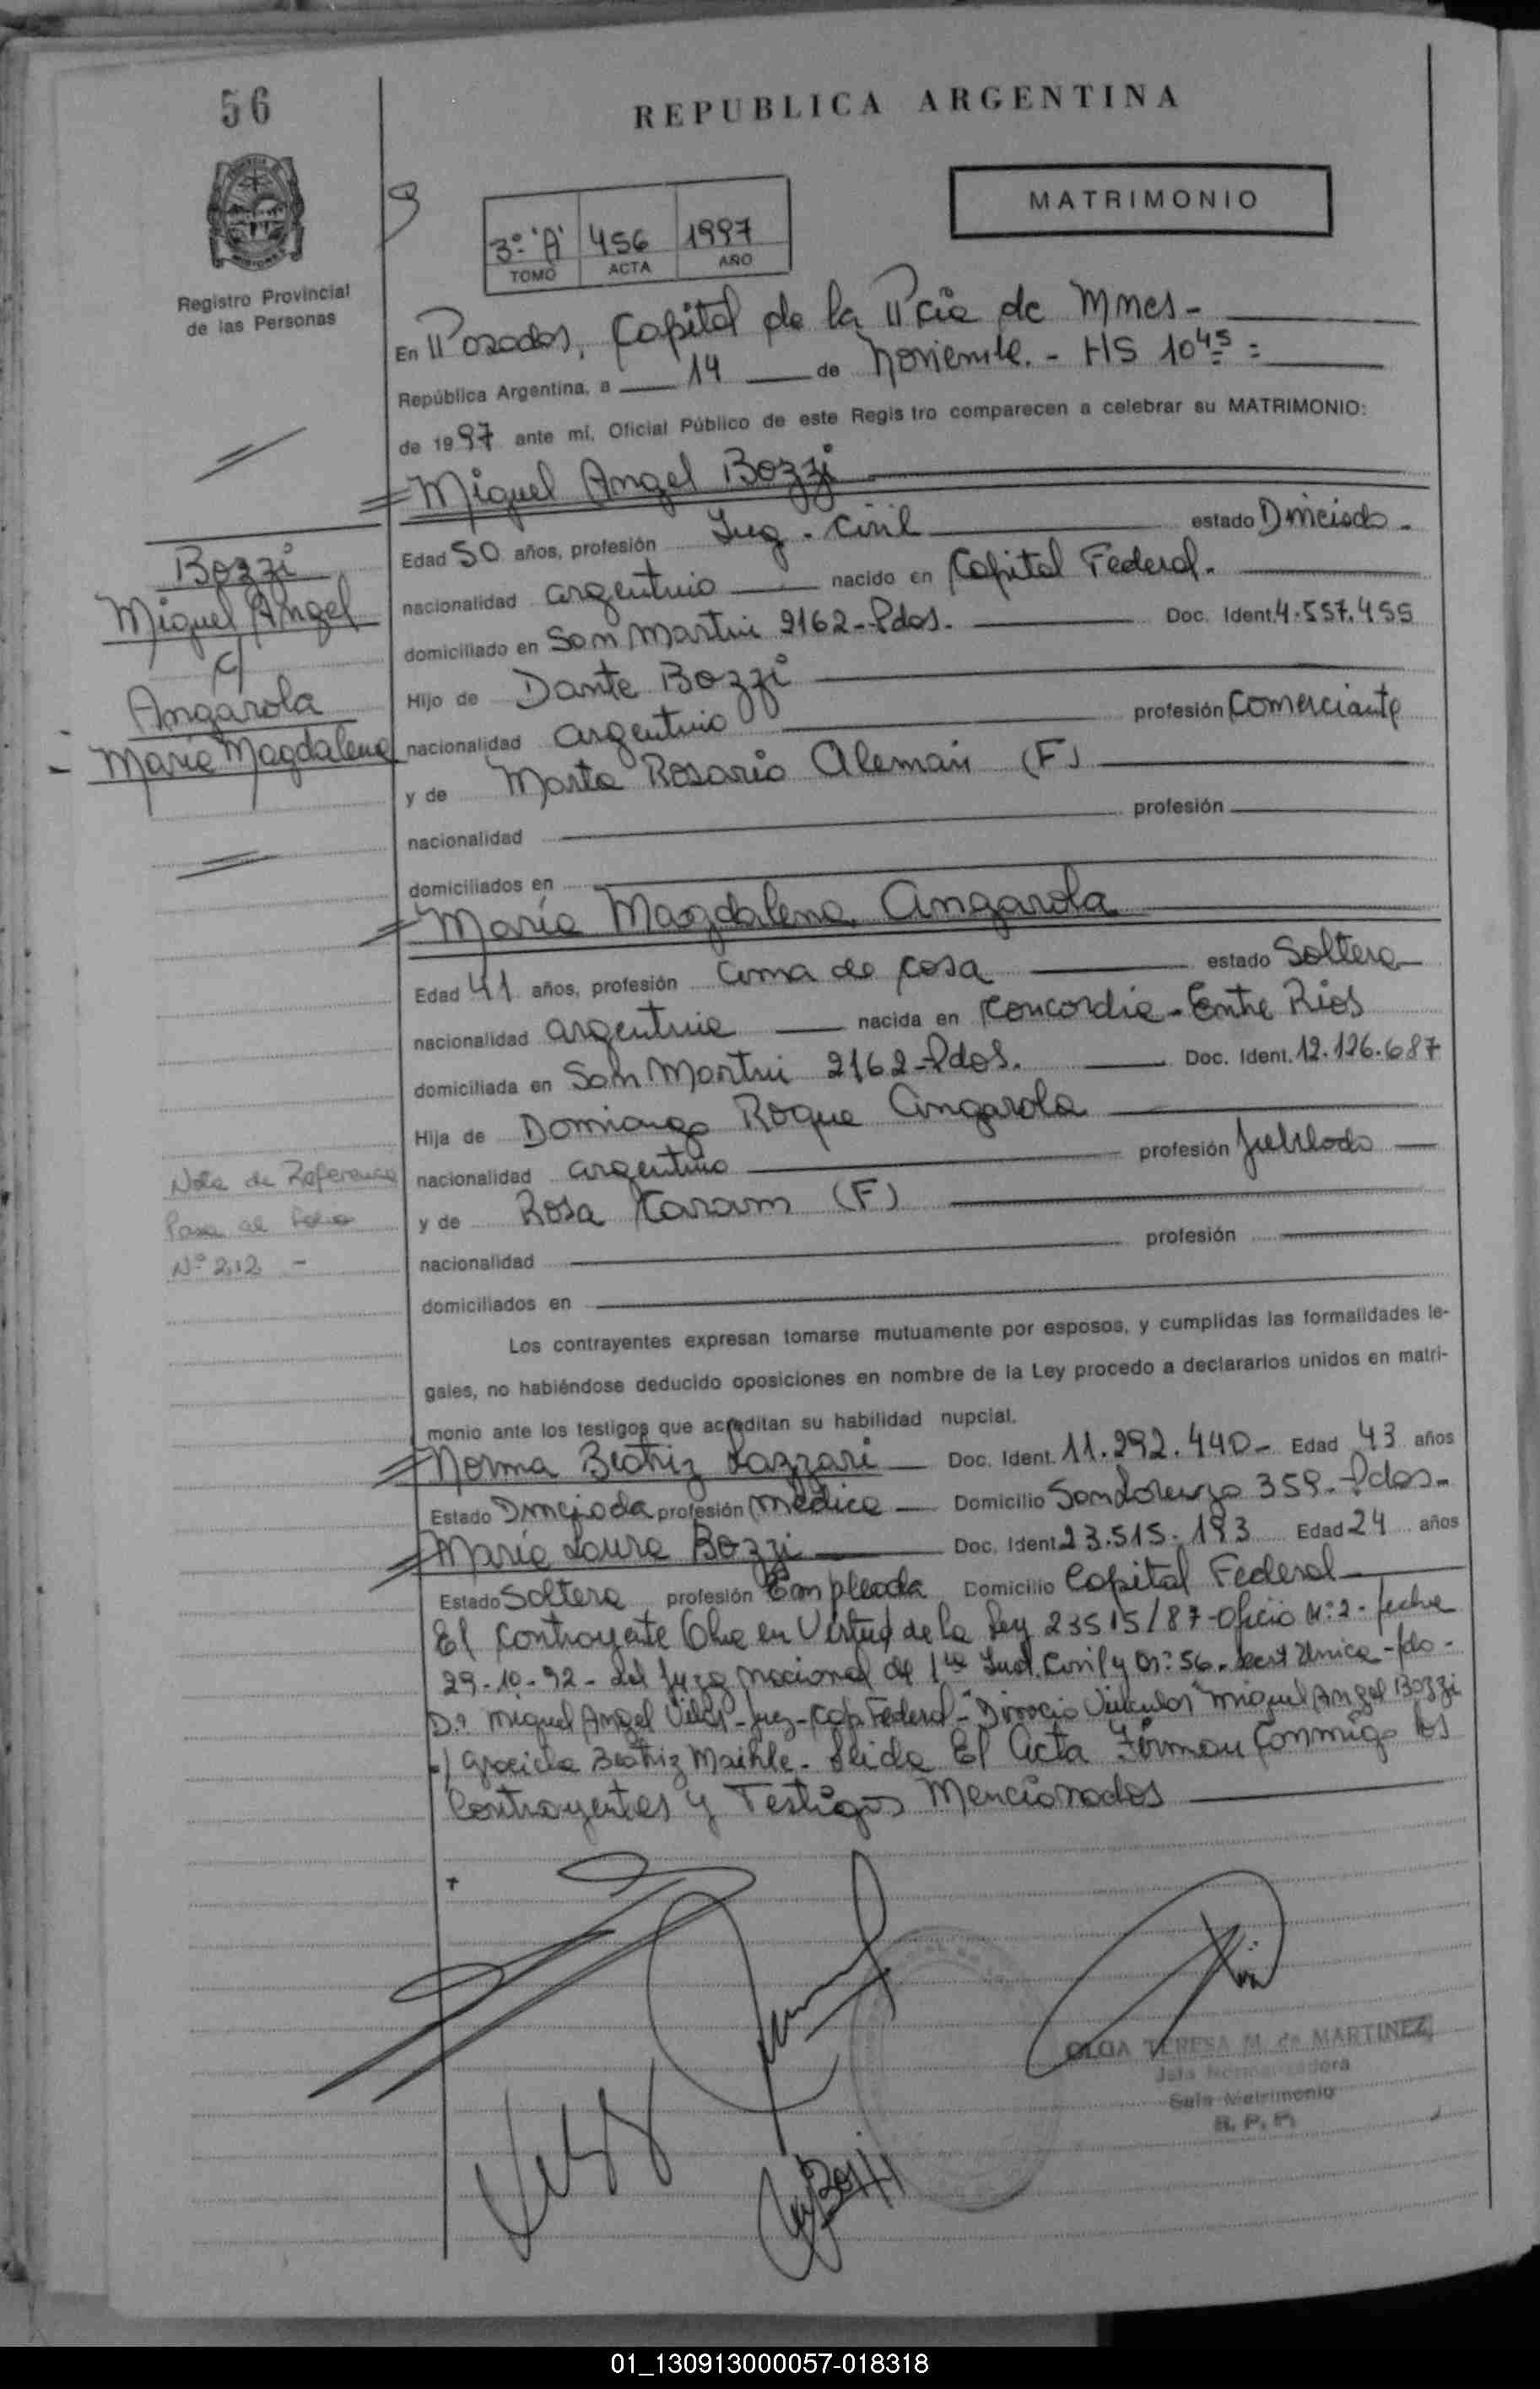 56
REPUBLICA ARGENTINA
MATRIMONIO
3º 'A' 456 1997
TOMO ACTA AÑO
Registro Provincial
de las Personas
En Posadas, Capital de la Pcia de Mnes-
República Argentina, a 14 de Noviembre. - HS 10 45 =
de 1997 ante mí, Oficial Público de este Registro comparecen a celebrar su MATRIMONIO:
Miguel Angel Bozzi
Edad 50 años, profesión Ing. Civil estado Divorciado.
nacionalidad argentino nacido en Capital Federal.
domiciliado en San Martin 2162-Pdas. Doc. Ident. 4.557.455
Hijo de Dante Bozzi
nacionalidad argentino profesión Comerciante
y de Marta Rosario Aleman (F)
nacionalidad profesión
domiciliados en
Bozzi
Miguel Angel
c/
Angarola
María Magdalena
María Magdalena Angarola
Edad 41 años, profesión ama de casa estado Soltera
nacionalidad argentina nacida en Concordia-Entre Rios
domiciliada en San Martin 2162-Pdas. Doc. Ident. 12.126.687
Hija de Domingo Roque Angarola
nacionalidad argentino profesión Jubilado
y de Rosa Karam (F)
nacionalidad profesión
domiciliados en
Nota de Referencia
Pasa al Folio
Nº 212 -
Los contrayentes expresan tomarse mutuamente por esposos, y cumplidas las formalidades le-
gales, no habiéndose deducido oposiciones en nombre de la Ley procedo a declararlos unidos en matri-
monio ante los testigos que acreditan su habilidad nupcial.
Norma Beatriz Lazzari Doc. Ident. 11.292.440- Edad 43 años
Estado Divorciada profesión Médica Domicilio San Lorenzo 359-Pdas-
María Laura Bozzi Doc. Ident. 23.515.193 Edad 24 años
Estado Soltera profesión Empleada Domicilio Capital Federal
El contrayente en Virtud de la Ley 23515/87-Oficio Nº 2- fecha
29-10-92- del Juzg Nacional de 1ra Inst. Civil y Nº 56- Secret Unica-fdo-
Dr. Miguel Angel Juez-Cap Federal-"Divorcio Vincular" Miguel Angel Bozzi
c/ Graciela Beatriz Maihle. Leida El Acta Firman Conmigo los
Contrayentes y Testigos Mencionados
OLGA TERESA M. de MARTINEZ
Sala Matrimonio
R. P. P.
01_130913000057-018318